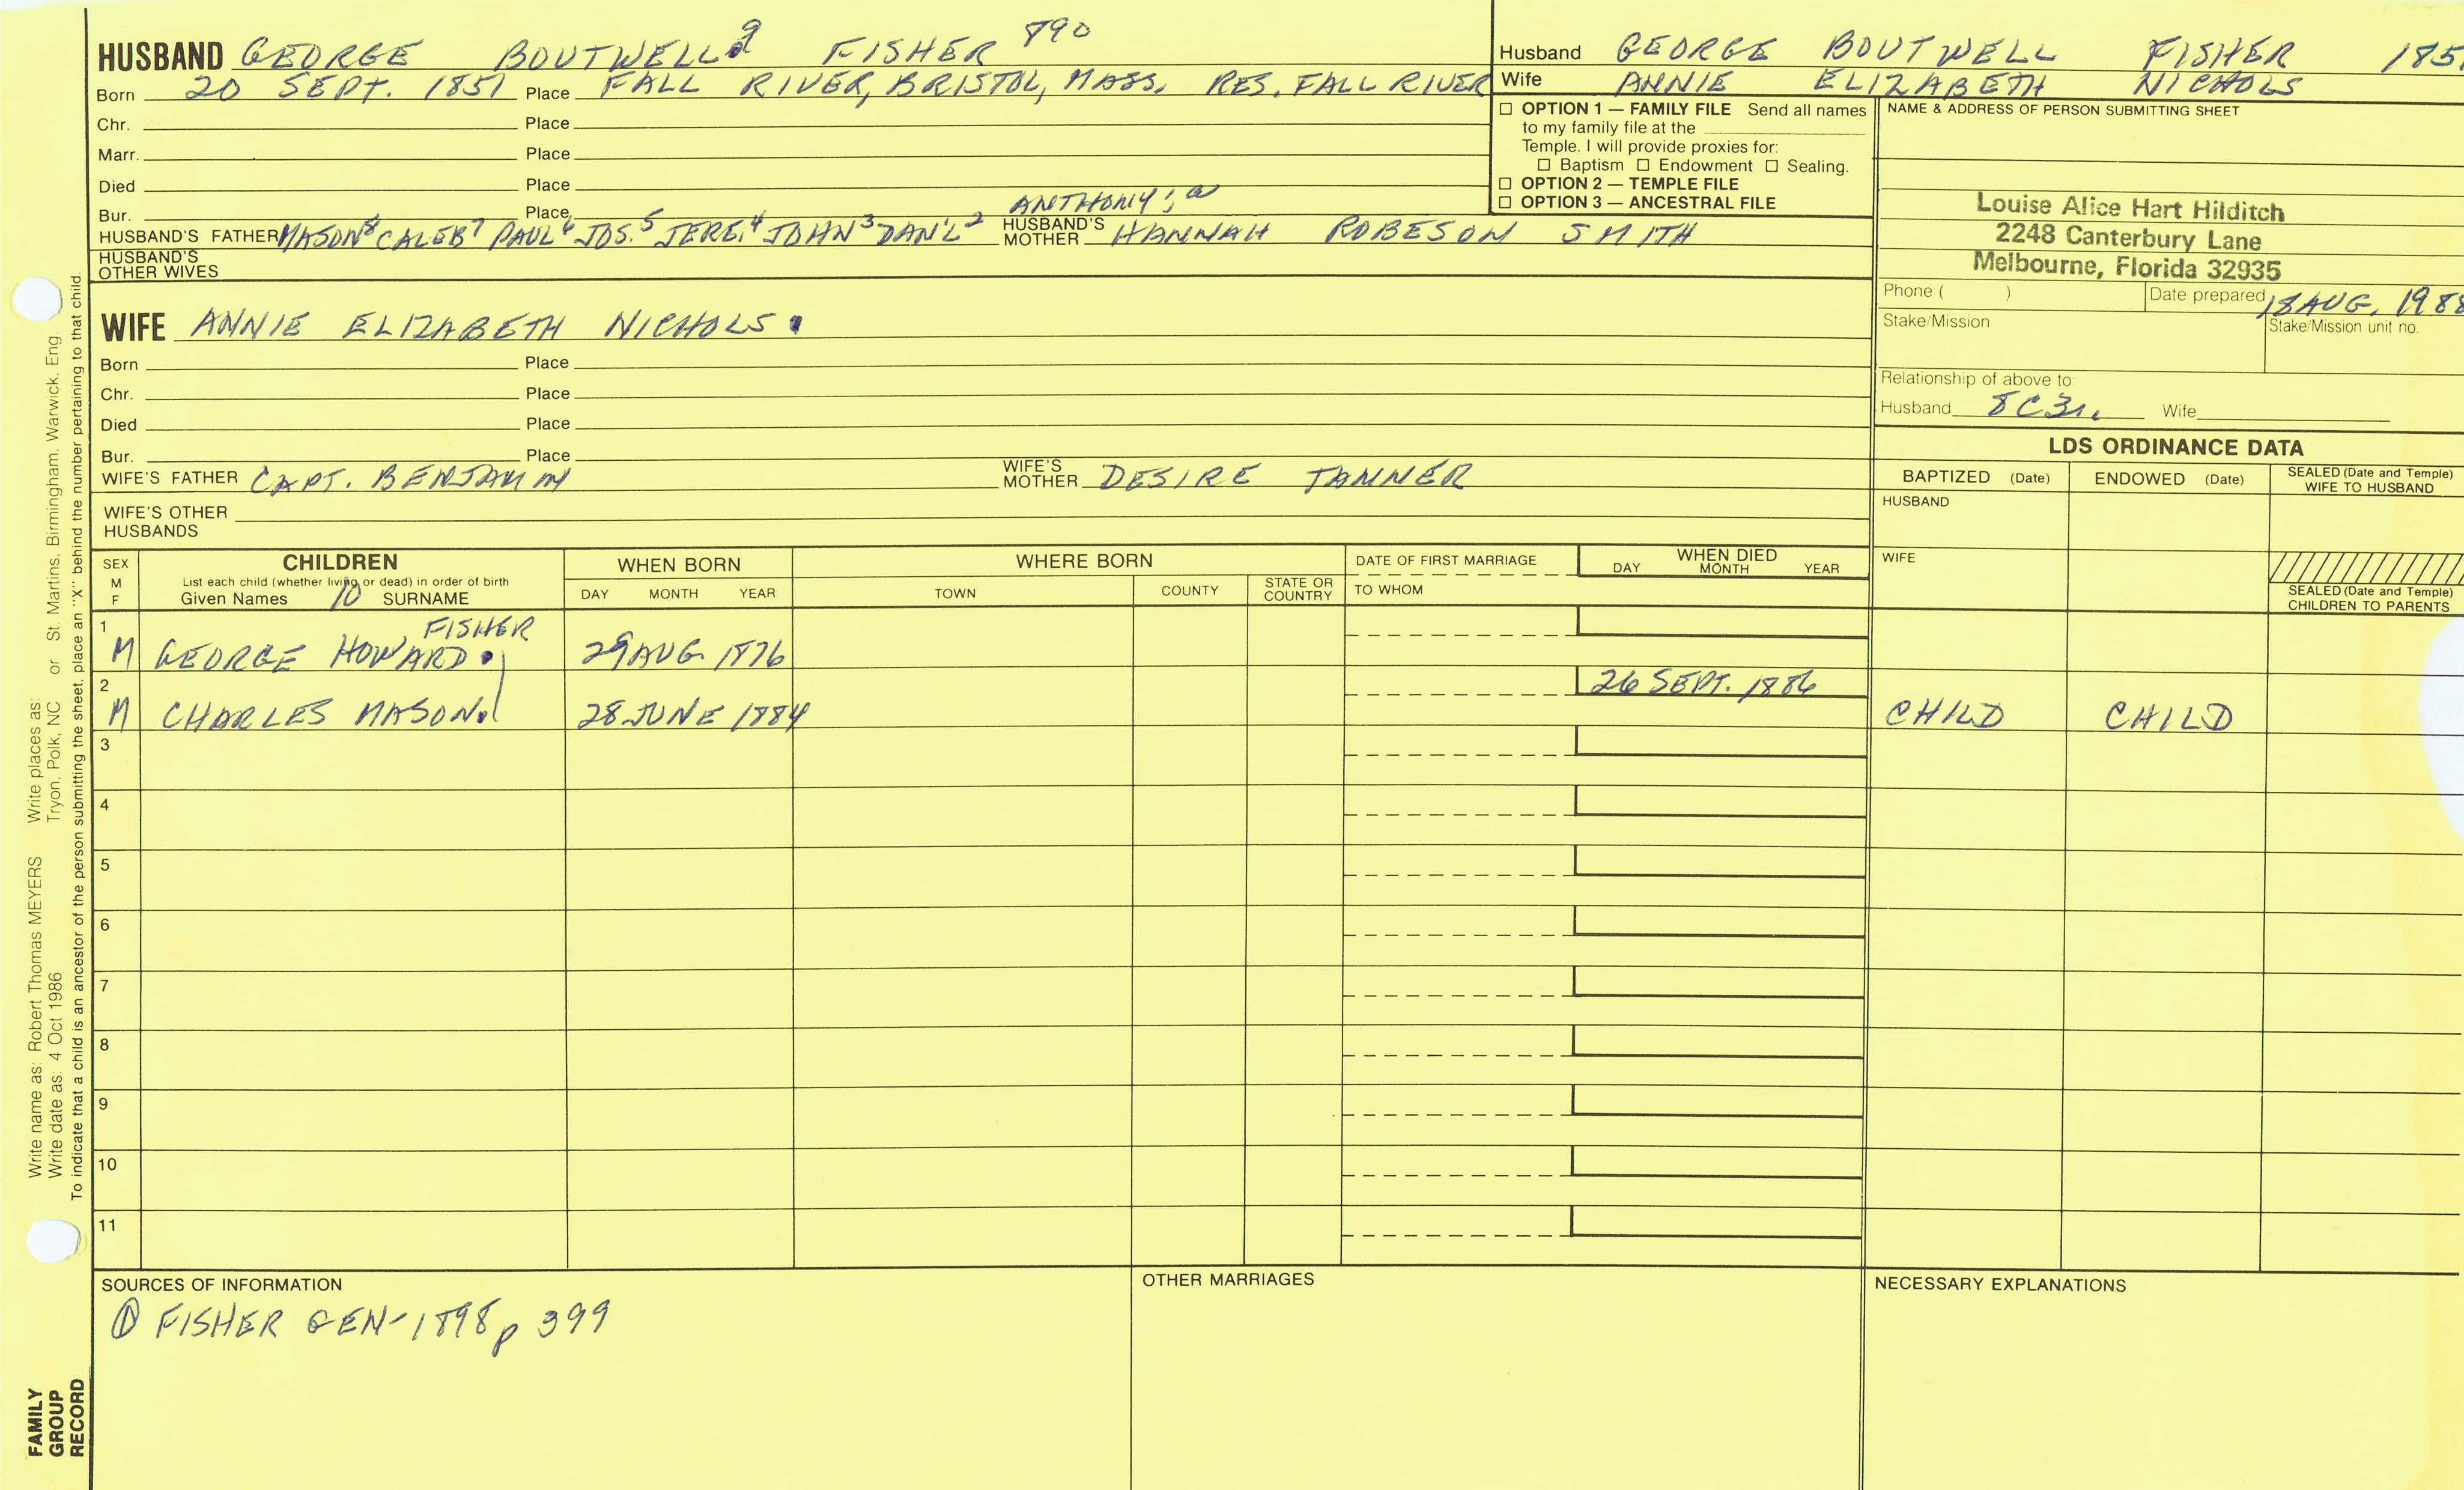 HUSBAND GEORGE BOUTWELL 9 FISHER 890
Born 20 SEPT. 1851 Place FALL RIVER, BRISTOL, MASS. RES. FALL RIVER
Chr. Place
Marr. Place
Died Place
Bur. Place
HUSBAND'S FATHER MASON 8 CALEB 7 PAUL 6 JOS. 5 JERE. 4 JOHN 3 DAN'L 2 ANTHONY
HUSBAND'S MOTHER HANNAH ROBESON SMITH
HUSBAND'S OTHER WIVES
WIFE ANNIE ELIZABETH NICHOLS
Born Place
Chr. Place
Died Place
Bur. Place
WIFE'S FATHER CAPT. BENJAMIN
WIFE'S MOTHER DESIRE TANNER
WIFE'S OTHER HUSBANDS
Husband GEORGE BOUTWELL FISHER 185
Wife ANNIE ELIZABETH NICHOLS
☐ OPTION 1 — FAMILY FILE Send all names
to my family file at the
Temple. I will provide proxies for:
☐ Baptism ☐ Endowment ☐ Sealing.
☐ OPTION 2 — TEMPLE FILE
☐ OPTION 3 — ANCESTRAL FILE
NAME & ADDRESS OF PERSON SUBMITTING SHEET
Louise Alice Hart Hilditch
2248 Canterbury Lane
Melbourne, Florida 32935
Phone ( ) Date prepared 18 AUG. 1988
Stake/Mission Stake/Mission unit no.
Relationship of above to:
Husband 8C3R. Wife
LDS ORDINANCE DATA
BAPTIZED (Date) ENDOWED (Date) SEALED (Date and Temple)
WIFE TO HUSBAND
HUSBAND
WIFE
SEALED (Date and Temple)
CHILDREN TO PARENTS
SEX M F CHILDREN WHEN BORN WHERE BORN DATE OF FIRST MARRIAGE WHEN DIED
List each child (whether living or dead) in order of birth
Given Names 10 SURNAME DAY MONTH YEAR TOWN COUNTY STATE OR COUNTRY TO WHOM DAY MONTH YEAR
1 M GEORGE HOWARD FISHER 29 AUG. 1876
2 M CHARLES MASON 28 JUNE 1884 26 SEPT. 1886 CHILD CHILD
3
4
5
6
7
8
9
10
11
SOURCES OF INFORMATION
① FISHER GEN-1898 p 399
OTHER MARRIAGES
NECESSARY EXPLANATIONS
Write name as: Robert Thomas MEYERS Write places as:
Write date as: 4 Oct 1986 Tryon, Polk, NC or St. Martins, Birmingham, Warwick, Eng
To indicate that a child is an ancestor of the person submitting the sheet, place an "X" behind the number pertaining to that child.
FAMILY
GROUP
RECORD